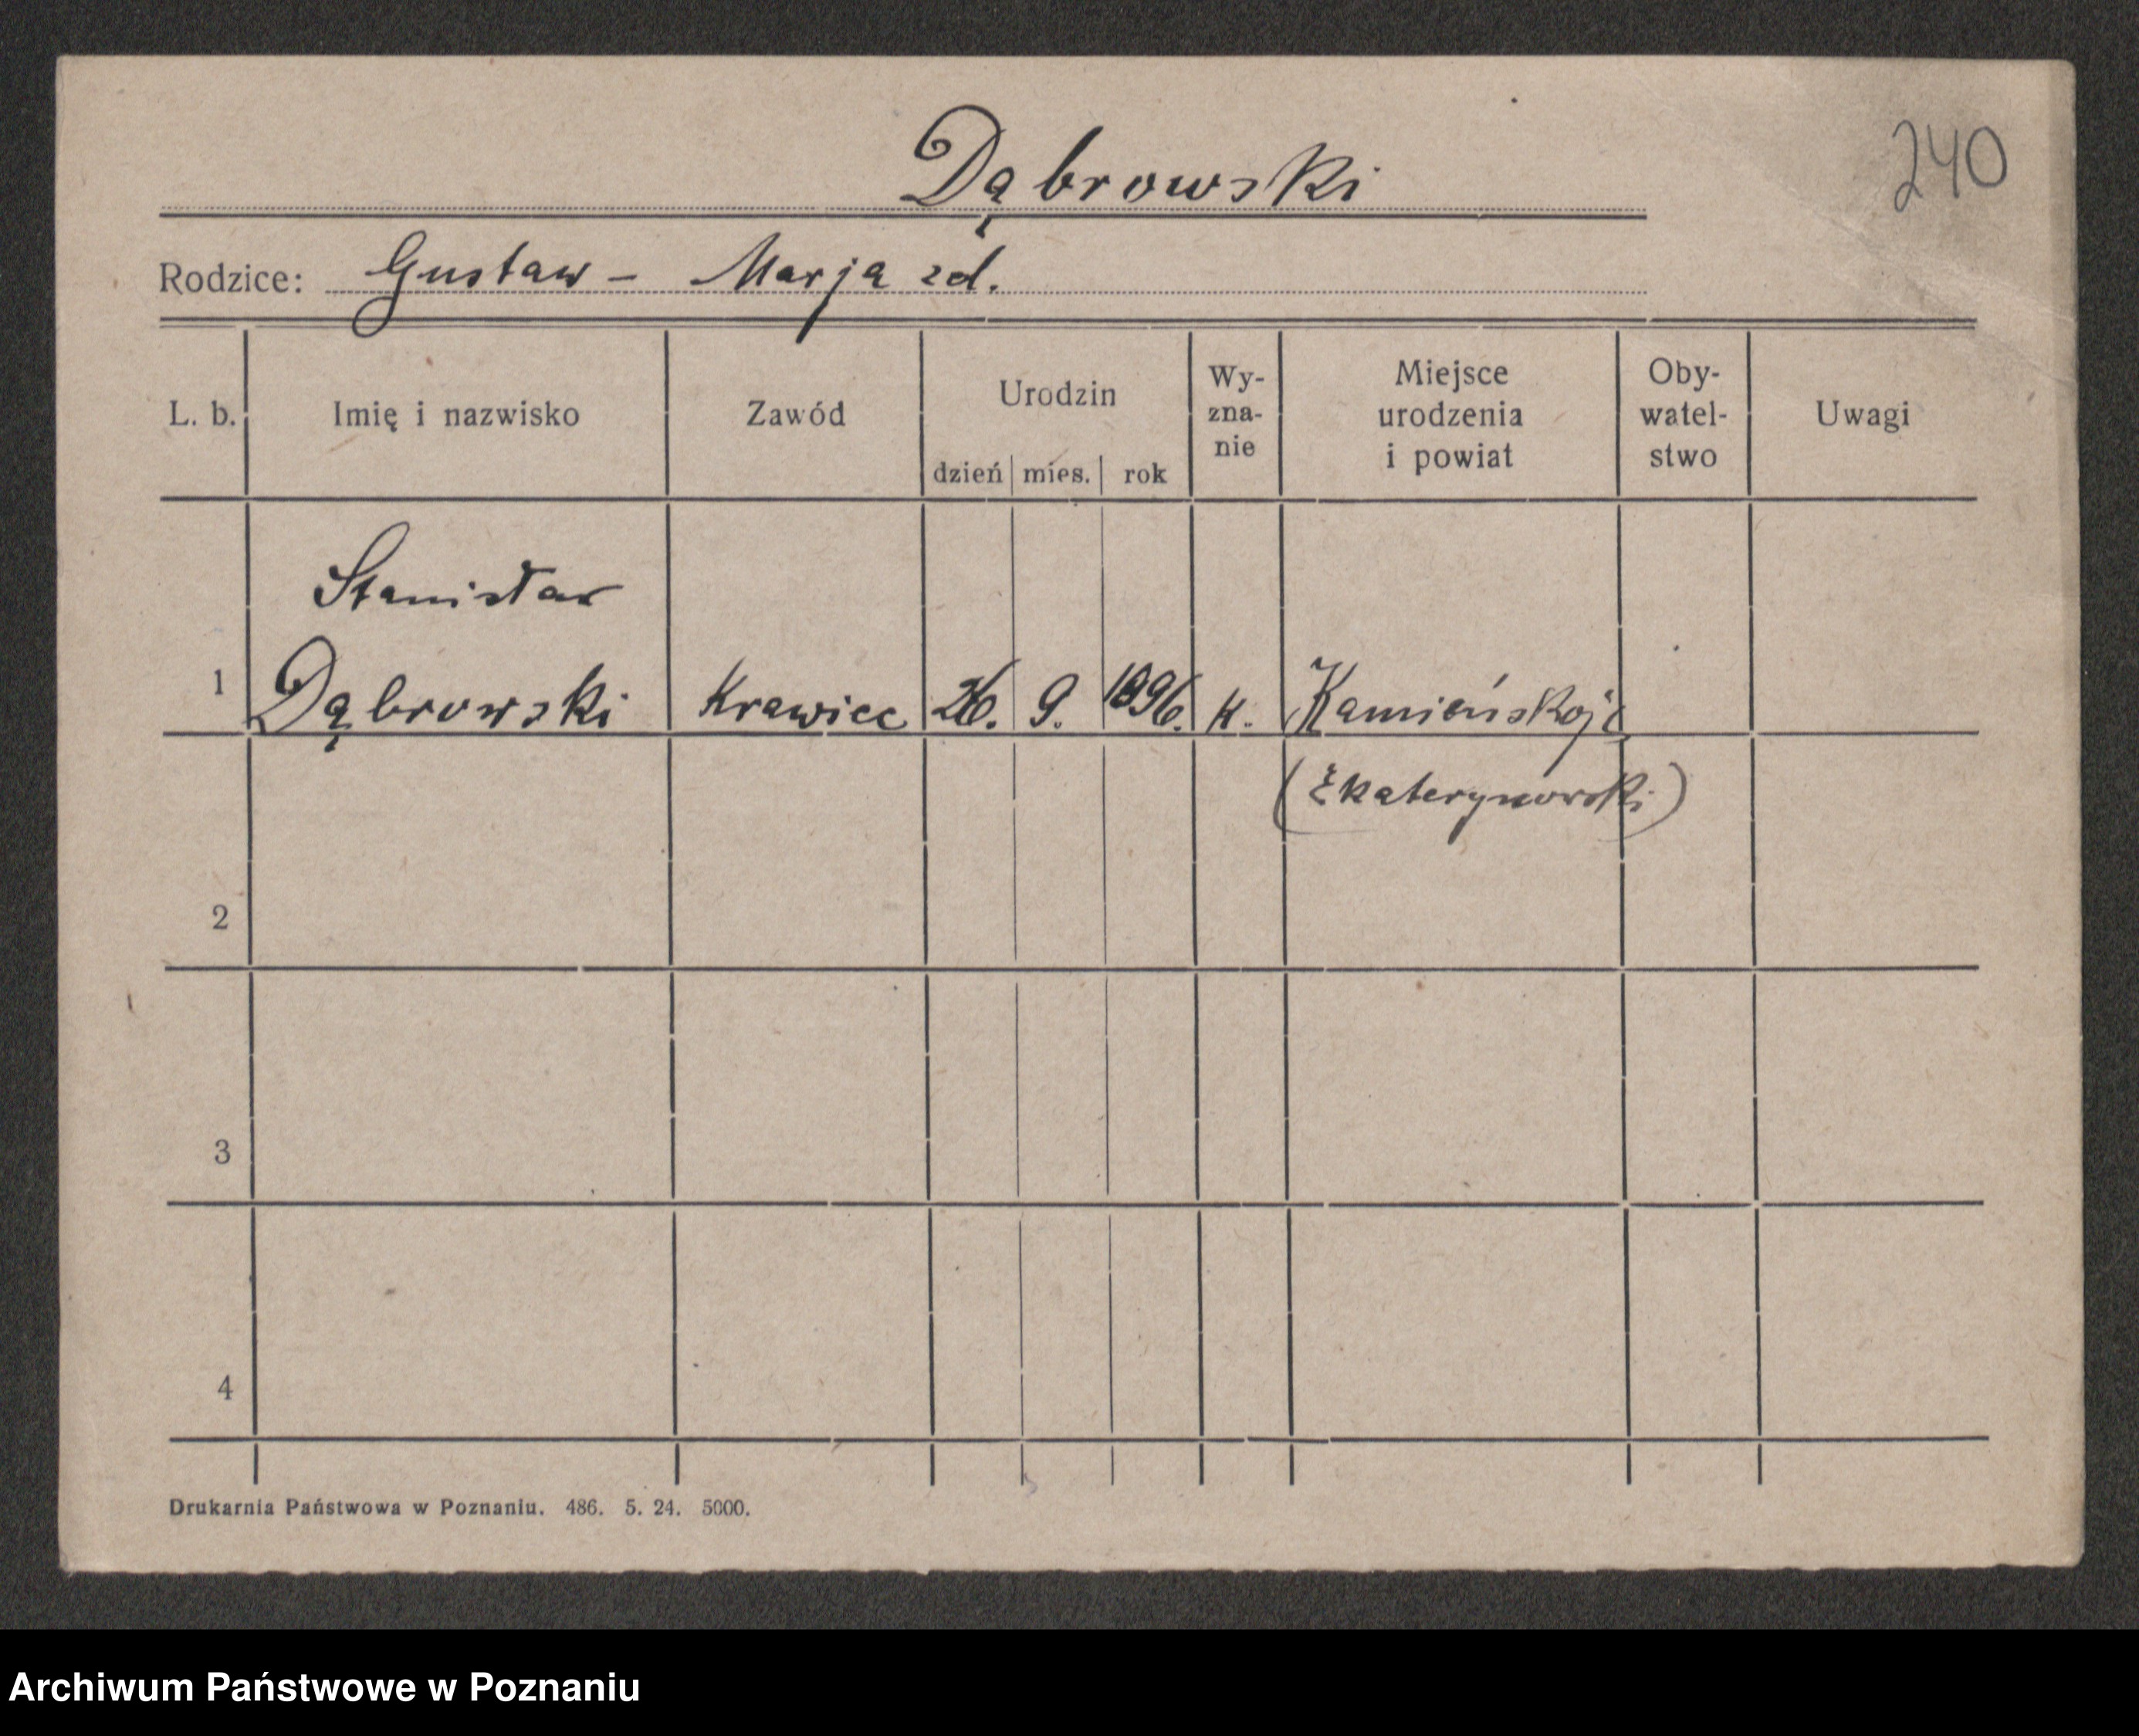 240
Dąbrowski
Rodzice: Gustaw - Marja zd.
L. b. Imię i nazwisko Zawód Urodzin dzień mies. rok Wy-zna-nie Miejsce urodzenia i powiat Oby-watel-stwo Uwagi
Stanisław
1 Dąbrowski Krawiec 26. 9. 1896. k. Kamieńskoje
(Ekaterynowski)
2
3
4
Drukarnia Państwowa w Poznaniu. 486. 5. 24. 5000.
Archiwum Państwowe w Poznaniu